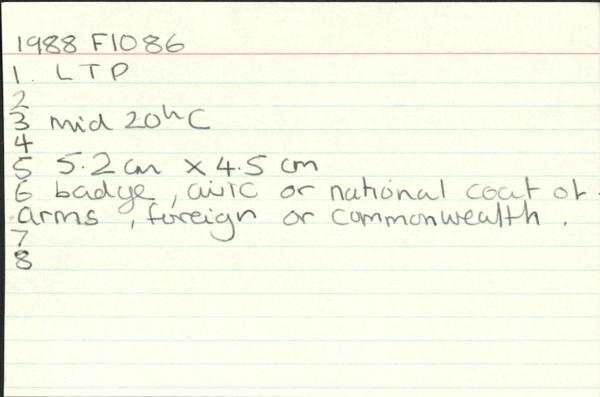 1988 F1086
1. LTP
2
3 mid 20th C
4
5 5.2 cm x 4.5 cm
6 badge, civic or national coat of
arms, foreign or commonwealth.
7
8